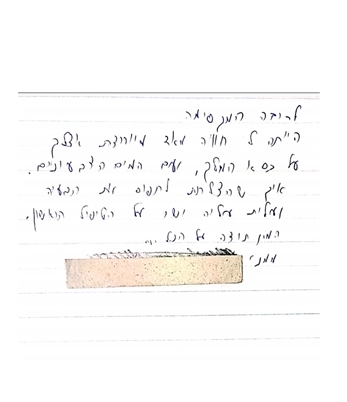 לריבה המקסימה
הייתה לי חוויה מאוד מיוחדת אצלך
על כסא המלך, ועם המים הצבעוניים.
איך שהצלחת לתפוס את הבעיה
ועלית עליה ישר על הטיפול הראשון.
המון תודה על הכל ...
ממני